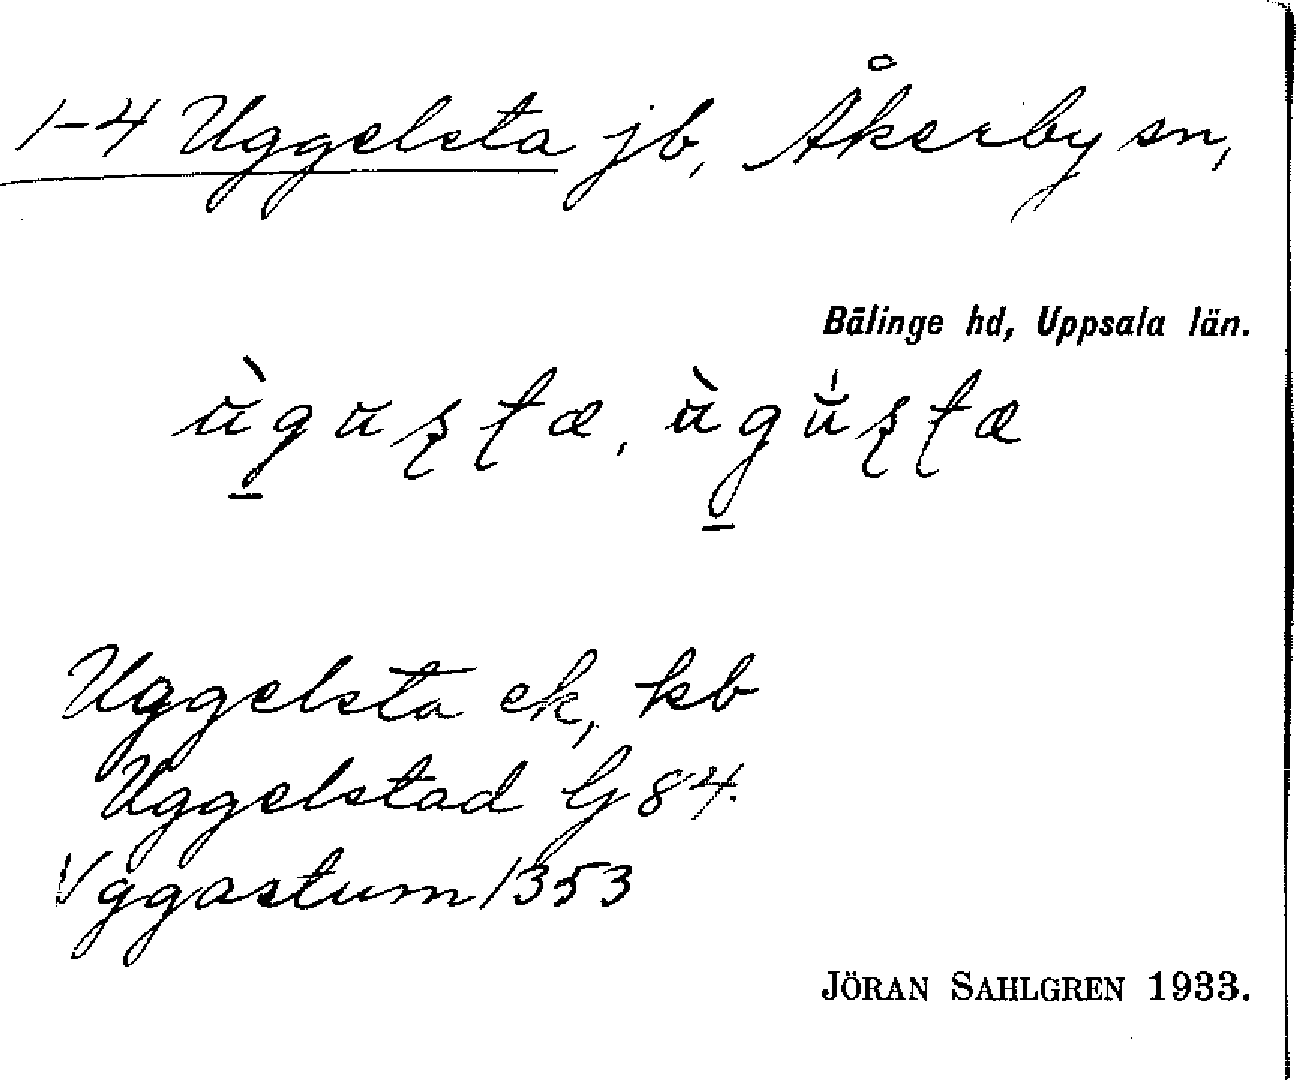 1-4 Uggelsta jb, Åkerby sn,
Bälinge hd, Uppsala län.
Uggelsta ek, kb
Uggelstad G 84.
Vggastum 1353
JÖRAN SAHLGREN 1933.